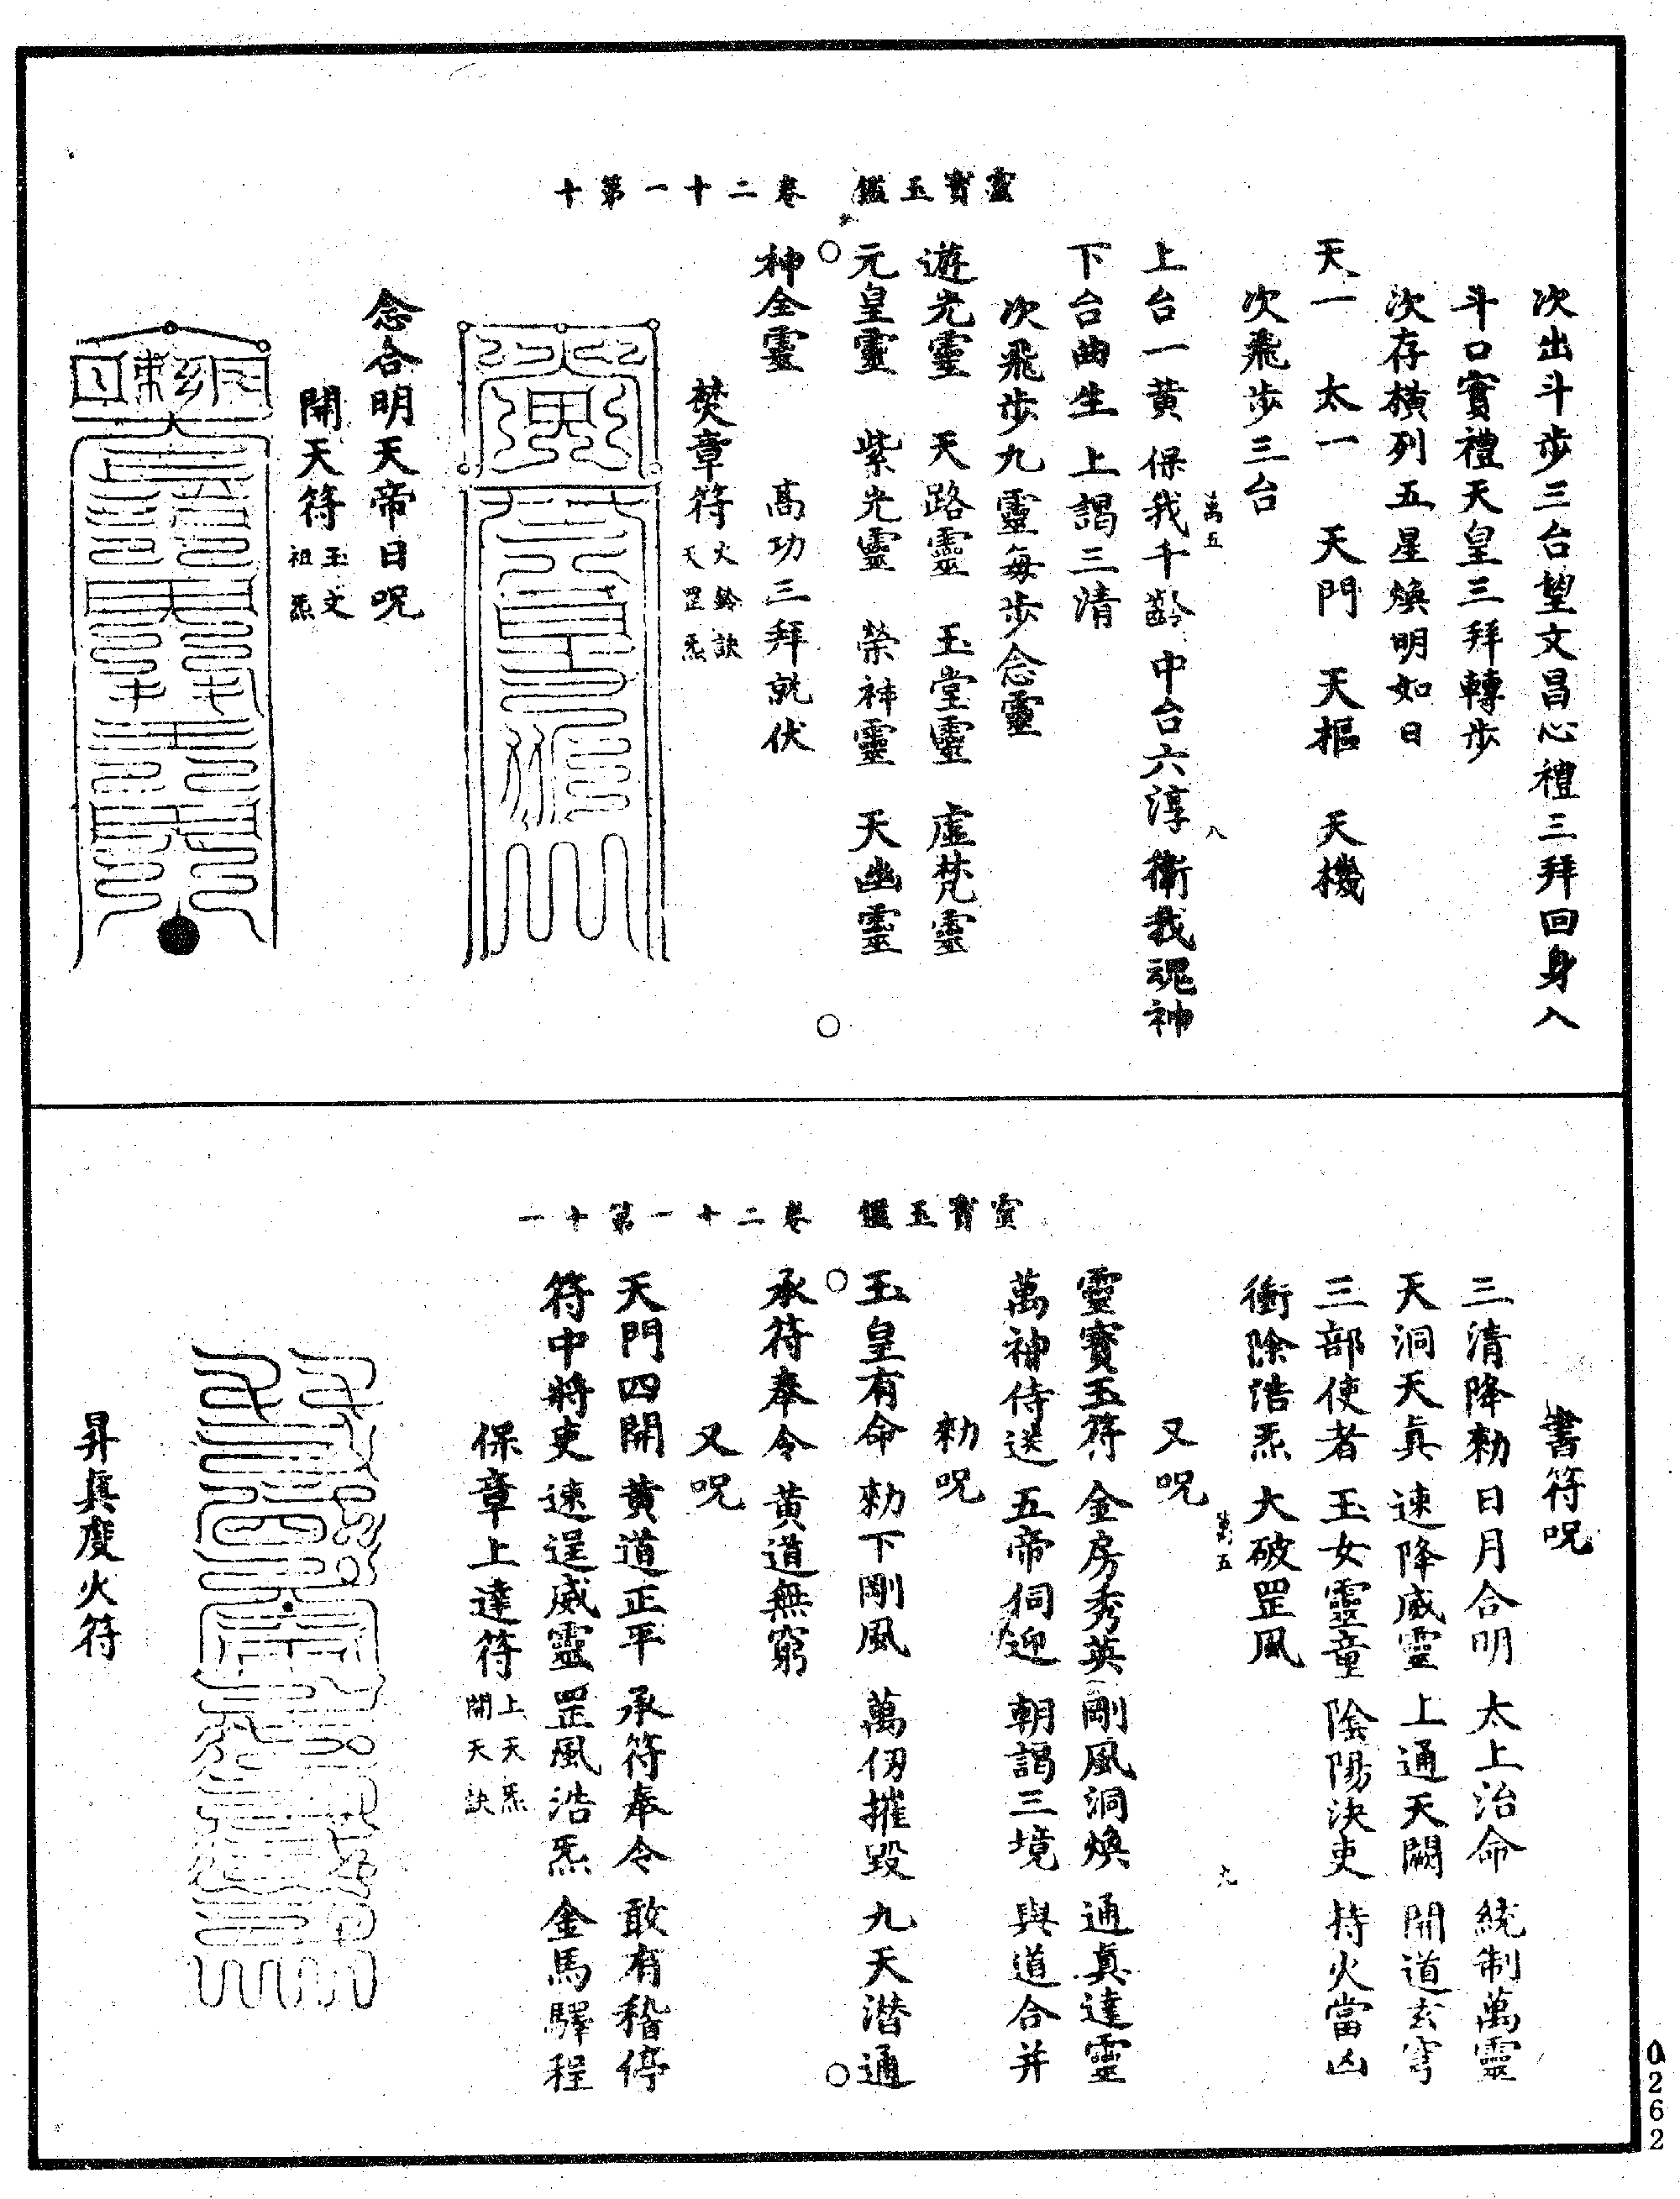 靈寶玉鑑　卷二十一第十
次出斗步三台望文昌心禮三拜回身入
斗口實禮天皇三拜轉步
次存橫列五星煥明如日
天一　太一　天門　天樞　天機
次飛步三台
萬五　八
上台一黃　保我千齡　中台六淳　衛我魂神
下台曲生　上謁三清
次飛步九靈每步念靈
遊光靈　天路靈　玉堂靈　虛梵靈
元皇靈　紫光靈　榮神靈　天幽靈
○　○
神全靈　高功三拜就伏
焚章符　火鈴訣　天罡炁
念合明天帝日呪
開天符　玉文　祖炁
靈寶玉鑑　卷二十一第十一
書符呪
三清降勑　日月合明　太上治命　統制萬靈
天洞天真　速降威靈　上通天闕　開道玄穹
三部使者　玉女靈童　陰陽決吏　持火當凶
衝除浩炁　大破罡風
萬五　九
又呪
靈寶玉符　金房秀英　剛風洞煥　通真達靈
萬神侍送　五帝伺迎　朝謁三境　與道合并
勑呪
玉皇有命　勑下剛風　萬仞摧毀　九天潛通
○　○
承符奉令　黃道無窮
又呪
天門四開　黃道正平　承符奉令　敢有稽停
符中將吏　速逞威靈　罡風浩炁　金馬驛程
保章上達符　上天炁　開天訣
昇真度火符
0262